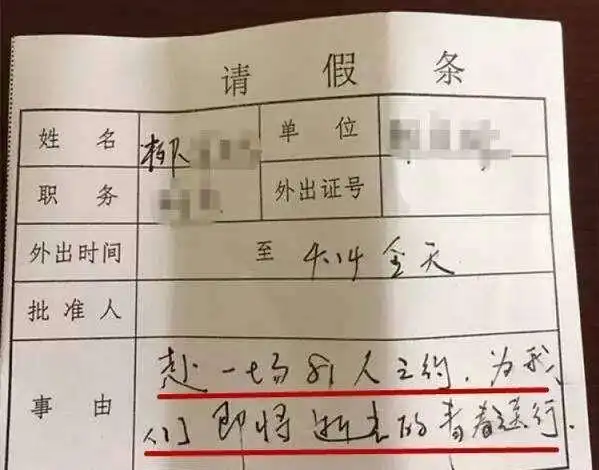 请假条
姓名 柳 单位
职务 外出证号
外出时间 至 4.14 全天
批准人
事由 赴一场81人之约，为我
们即将逝去的青春送行.